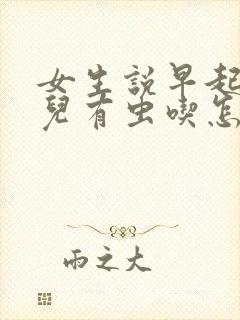 女生說早起
兒有虫喫怎
雨之大